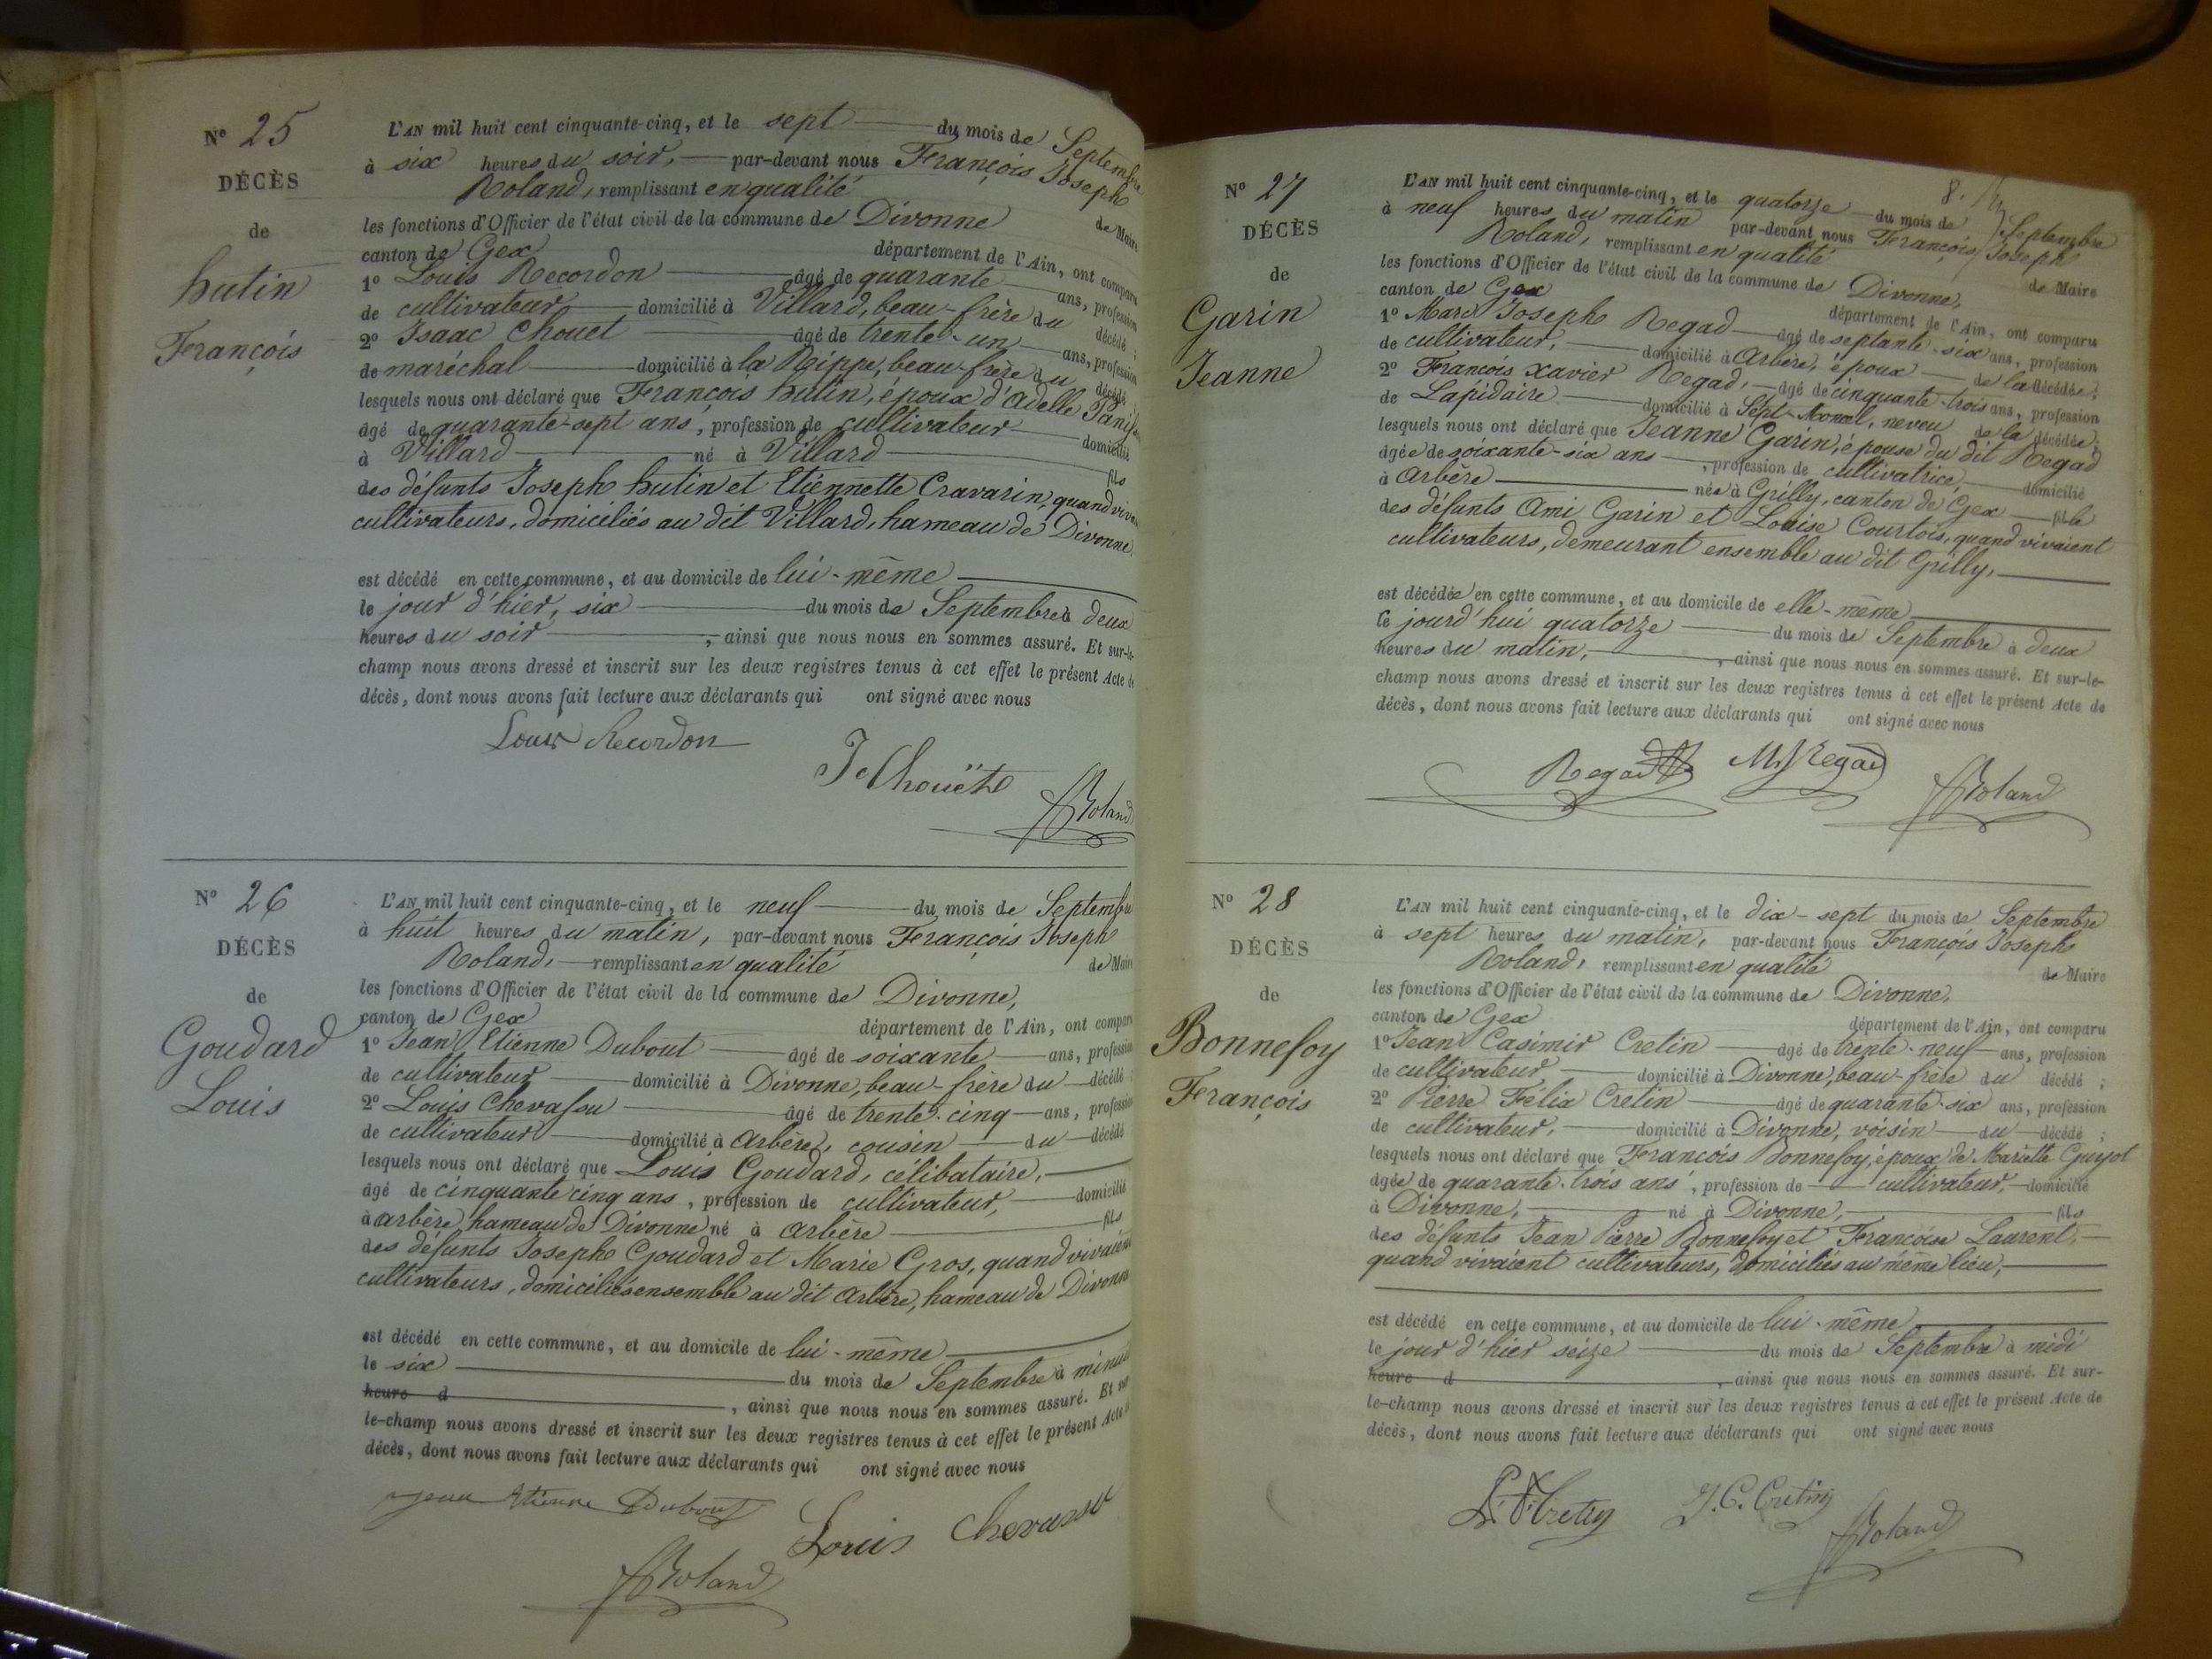 N° 25
DÉCÈS
de
hutin
François
L'AN mil huit cent cinquante-cinq, et le sept du mois de Septembre
à six heures du soir, par-devant nous François Joseph
Roland, remplissant en qualité de Maire
les fonctions d'Officier de l'état civil de la commune de Divonne
canton de Gex département de l'Ain, ont comparu
1° Louis Recordon âgé de quarante ans, profession
de cultivateur domicilié à Villard, beau-frère du décédé ;
2° Isaac Chouet âgé de trente-un ans, profession
de maréchal domicilié à la Rippe, beau-frère du décédé
lesquels nous ont déclaré que François hutin, époux d'Adelle
âgé de quarante-sept ans, profession de cultivateur domicilié
à Villard né à Villard fils
des défunts Joseph hutin et Etiennette Cravarin, quand
cultivateurs, domiciliés au dit Villard, hameau de Divonne.
est décédé en cette commune, et au domicile de lui-même
le jour d'hier, six du mois de Septembre à deux
heures du soir, ainsi que nous nous en sommes assuré. Et sur-le-
champ nous avons dressé et inscrit sur les deux registres tenus à cet effet le présent Acte de
décès, dont nous avons fait lecture aux déclarants qui ont signé avec nous
Louis Recordon
Roland
N° 26
DÉCÈS
de
Goudard
Louis
L'AN mil huit cent cinquante-cinq, et le neuf du mois de Septembre
à huit heures du matin, par-devant nous François Joseph
Roland, remplissant en qualité de Maire
les fonctions d'Officier de l'état civil de la commune de Divonne,
canton de Gex département de l'Ain, ont comparu
1° Jean Etienne Dubout âgé de soixante ans, profession
de cultivateur domicilié à Divonne, beau-frère du décédé
2° Louis Chevassu âgé de trente-cinq ans, profession
de cultivateur domicilié à Arbère, cousin du décédé
lesquels nous ont déclaré que Louis Goudard, célibataire,
âgé de cinquante cinq ans, profession de cultivateur, domicilié
à arbère, hameau de Divonne né à arbère fils
des défunts Joseph Goudard et Marie Gros, quand vivaient
cultivateurs, domiciliés ensemble au dit arbère, hameau de Divonne
est décédé en cette commune, et au domicile de lui-même
le six du mois de Septembre à minuit
heure d, ainsi que nous nous en sommes assuré. Et sur-
le-champ nous avons dressé et inscrit sur les deux registres tenus à cet effet le présent Acte de
décès, dont nous avons fait lecture aux déclarants qui ont signé avec nous
Jean Etienne Dubout
Louis Chevassu
Roland
N° 27
DÉCÈS
de
Garin
Jeanne
L'AN mil huit cent cinquante-cinq, et le quatorze du mois de Septembre
à neuf heures du matin par-devant nous François Joseph
Roland, remplissant en qualité de Maire
les fonctions d'Officier de l'état civil de la commune de Divonne,
canton de Gex département de l'Ain, ont comparu
1° Marc Joseph Regad âgé de septante-six ans, profession
de cultivateur, domicilié à Arbère, époux de la décédée ;
2° François Xavier Regad, âgé de cinquante-trois ans, profession
de Lapidaire domicilié à Sept-Moncel, neveu de la décédée ;
lesquels nous ont déclaré que Jeanne Garin, épouse du dit Regad
âgée de soixante-six ans, profession de cultivatrice, domicilié
à Arbère née à Grilly, canton de Gex fille
des défunts Ami Garin et Louise Courtois, quand vivaient
cultivateurs, demeurant ensemble au dit Grilly,
est décédée en cette commune, et au domicile de elle-même
le jourd'hui quatorze du mois de Septembre à deux
heures du matin, ainsi que nous nous en sommes assuré. Et sur-le-
champ nous avons dressé et inscrit sur les deux registres tenus à cet effet le présent Acte de
décès, dont nous avons fait lecture aux déclarants qui ont signé avec nous
Regad MJ Regad
Roland
N° 28
DÉCÈS
de
Bonnefoy
François
L'AN mil huit cent cinquante-cinq, et le dix-sept du mois de Septembre
à sept heures du matin, par-devant nous François Joseph
Roland, remplissant en qualité de Maire
les fonctions d'Officier de l'état civil de la commune de Divonne,
canton de Gex département de l'Ain, ont comparu
1° Jean Casimir Cretin âgé de trente-neuf ans, profession
de cultivateur domicilié à Divonne, beau-frère du décédé ;
2° Pierre Felix Cretin âgé de quarante-six ans, profession
de cultivateur, domicilié à Divonne, voisin du décédé ;
lesquels nous ont déclaré que François Bonnefoy, époux de Mariette Guyot
âgée de quarante-trois ans, profession de cultivateur, domicilié
à Divonne, né à Divonne, fils
des défunts Jean Pierre Bonnefoy et Françoise Laurent,
quand vivaient cultivateurs, domiciliés au même lieu,
est décédé en cette commune, et au domicile de lui-même
le jour d'hier seize du mois de Septembre à midi
heure d, ainsi que nous nous en sommes assuré. Et sur-
le-champ nous avons dressé et inscrit sur les deux registres tenus à cet effet le présent Acte de
décès, dont nous avons fait lecture aux déclarants qui ont signé avec nous
P. F. Cretin J. C. Cretin
Roland